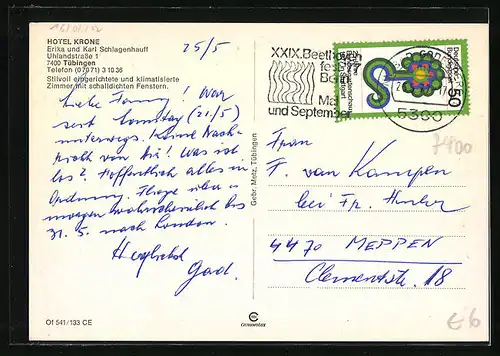 HOTEL KRONE
Erika und Karl Schlagenhauff
Uhlandstraße 1
7400 Tübingen
Telefon (07071) 31036
Stilvoll eingerichtete und klimatisierte
Zimmer mit schalldichten Fenstern.
25/5
Liebe Fanny! War
seit Sonntag (21/5)
unterwegs. Keine Nach-
richt von Dir! Was ist
los? Hoffentlich alles in
Ordnung. Fliege
wahrscheinlich bis
31. 5. nach London.
Herzlichst
Gad.
Of 541/133 CE
Gebr. Metz, Tübingen
XXIX. Beethoven
fest
Bonn
Mai
und September
Deutsche Bundespost
50
5300
7400
Frau
F. van Kampen
bei Fr. Huber
4470 MEPPEN
Clemenstr. 18
€6